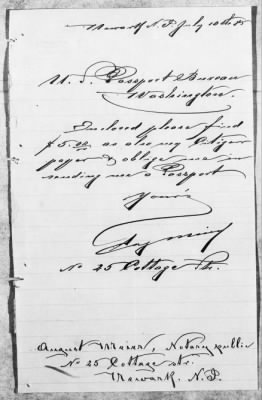 Newark N.J. July 10th 85
U.S. Passport Bureau
Washington.
Inclosed please find
$5.00 as also my Citizen
paper & oblige me in
sending me a Passport
Yours
Aug
No 25 Cottage Str.
August, Notary public
No 25 Cottage str.
Newark. N.J.